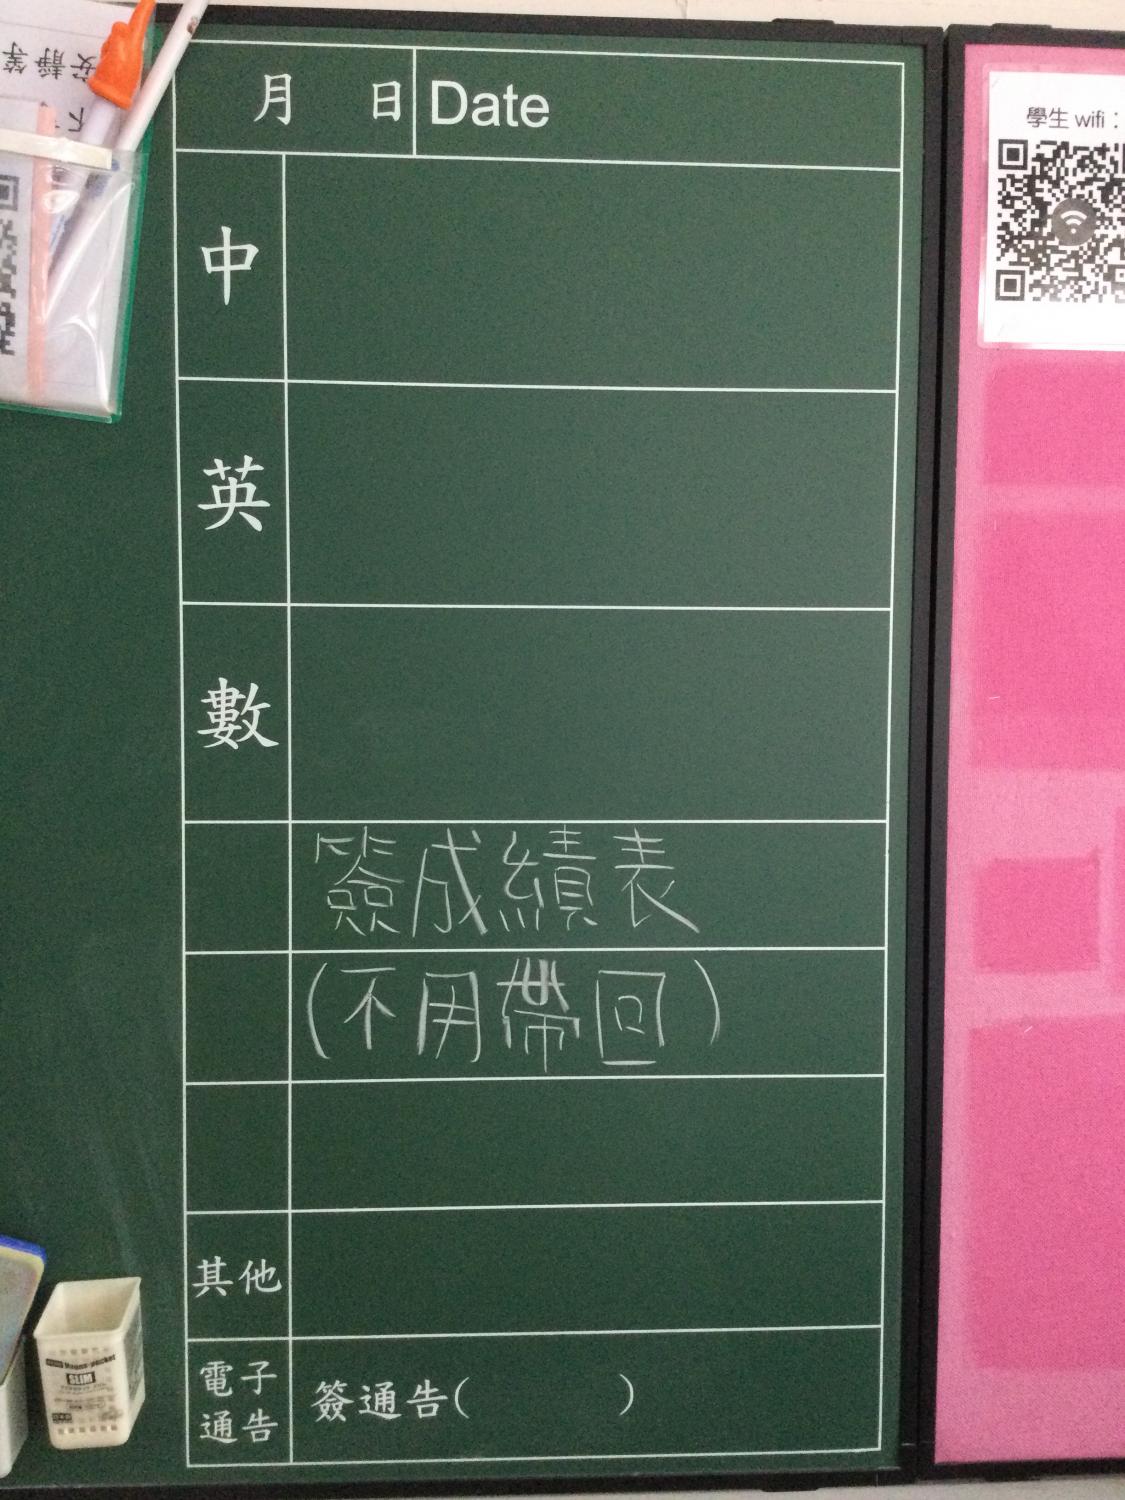 月 日 Date
中
英
數
簽成績表
(不用帶回)
其他
電子
通告
簽通告( )
學生 wifi：
安靜等
下
SLIM